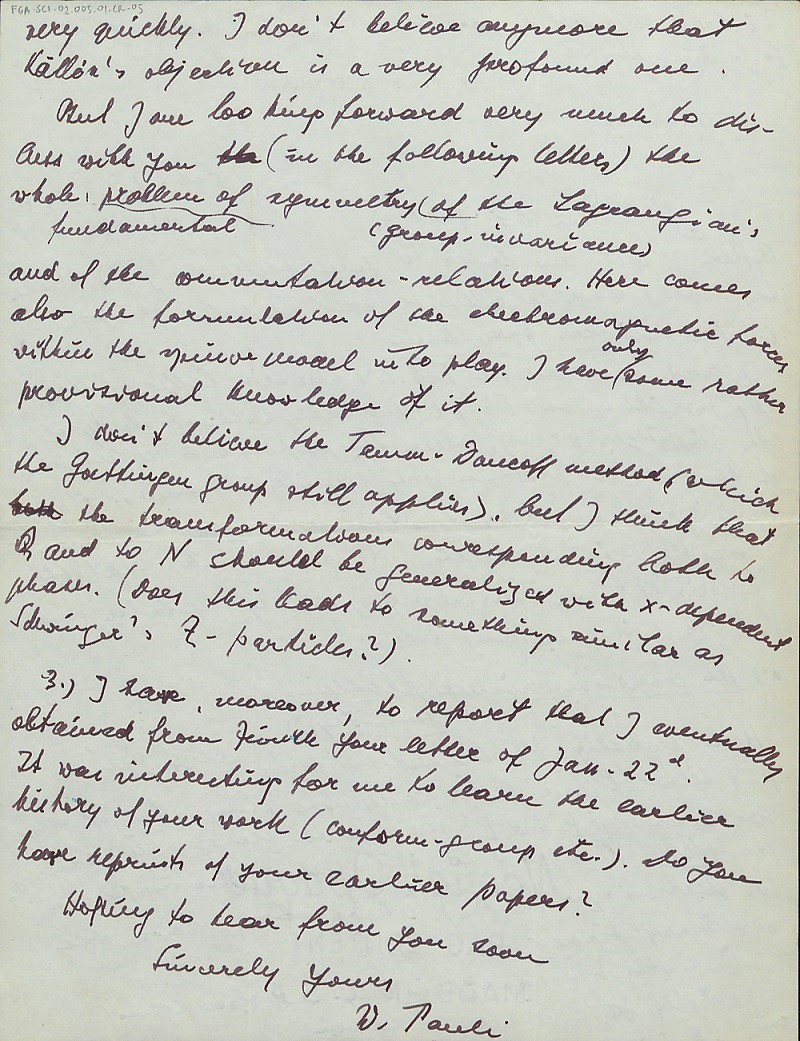 FGA-SCI-02.005.01.CR-05
very quickly. I don't believe anymore that
Källén's objection is a very profound one.
But I am looking forward very much to dis-
cuss with you the (in the following letters) the
whole problem of symmetry (of the Lagrangian's
fundamental (group-invariance)
and of the commutation-relations. Here comes
also the formulation of the electromagnetic forces
within the spinor model into play. I have only some rather
provisional knowledge of it.
I don't believe the Tamm-Dancoff method (which
the Goettingen group still applies), but I think that
both the transformations corresponding both to
Q and to N should be generalized with x-dependent
phases. (Does this leads to something similar as
Schwinger's Z-particles?).
3.) I have, moreover, to report that I eventually
obtained from Zürich your letter of Jan. 22d.
It was interesting for me to learn the earlier
history of your work (conform-group etc.). Do you
have reprints of your earlier papers?
Hoping to hear from you soon
Sincerely Yours
W. Pauli